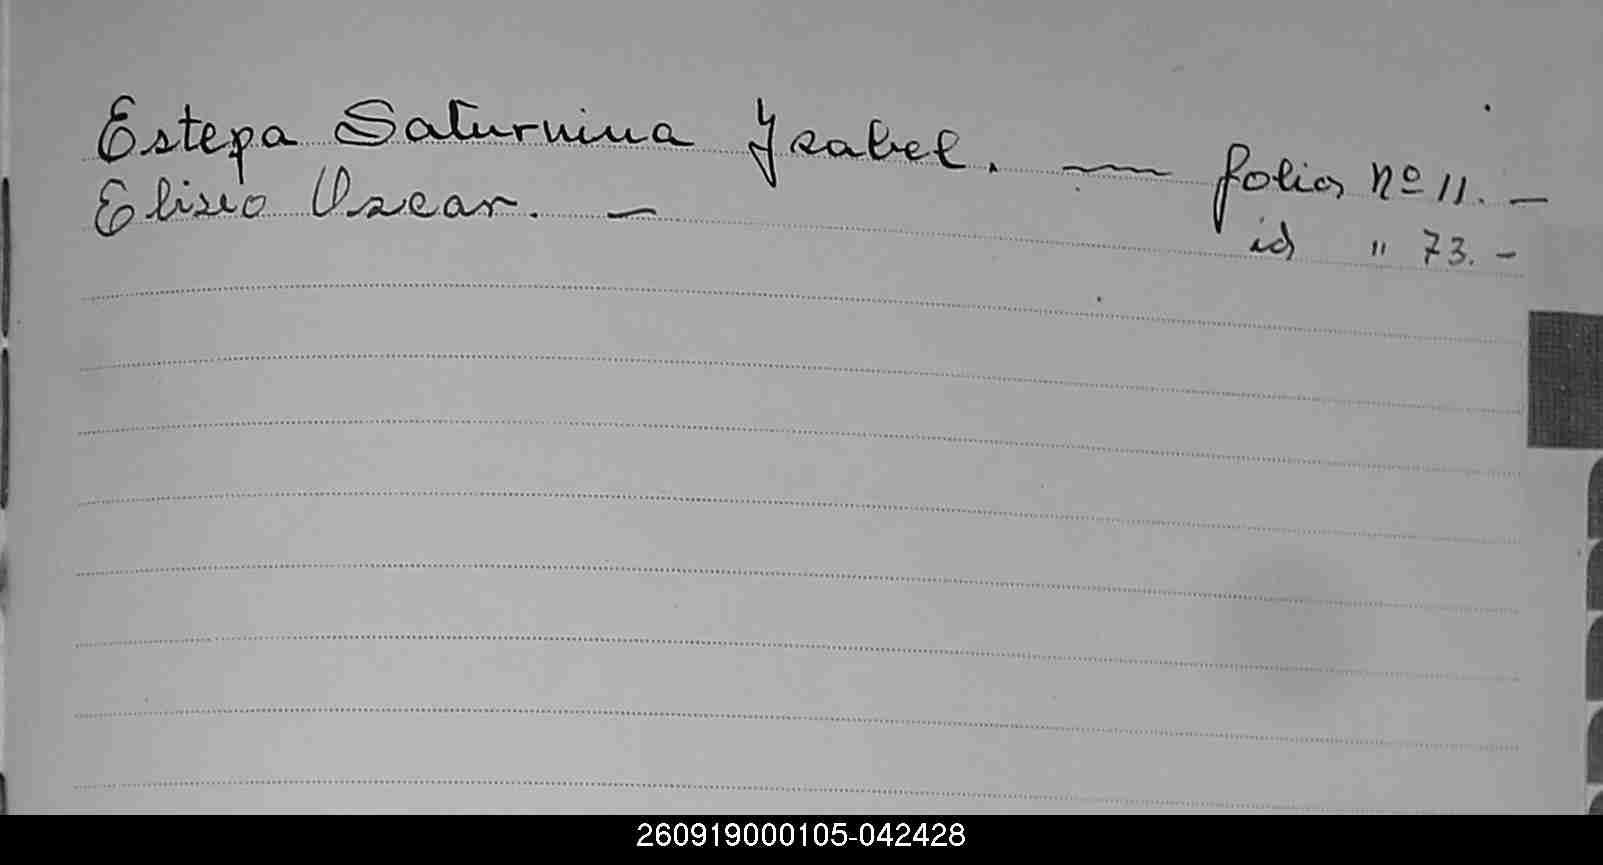 Estepa Saturnina Ysabel. — folios nº 11. —
Eliseo Oscar. — id " 73. -
260919000105-042428